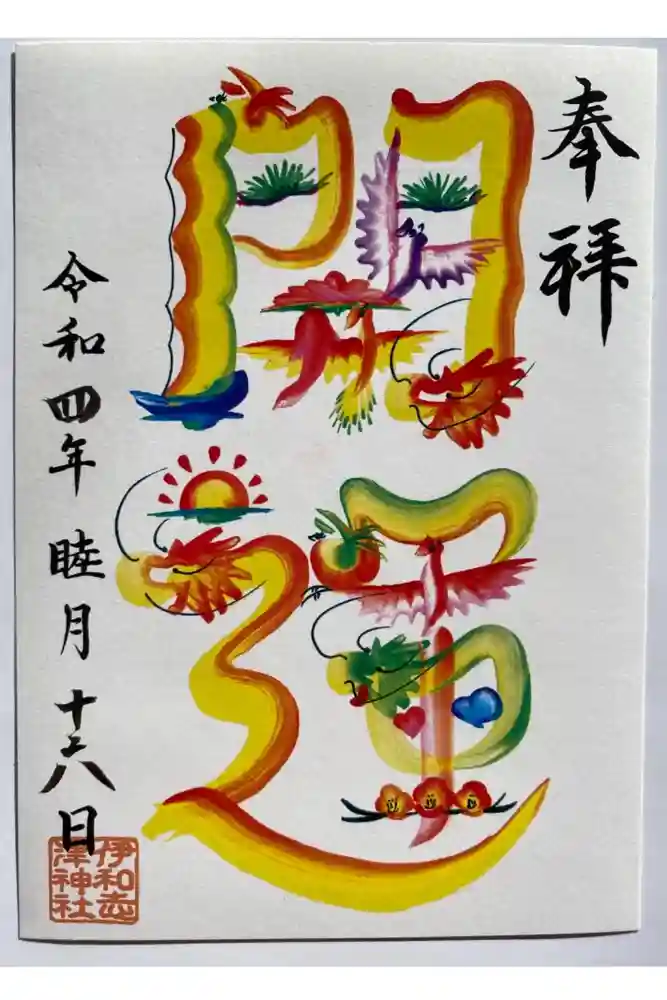 奉拝
開
運
令和四年 睦月 十六日
伊和志
津神社